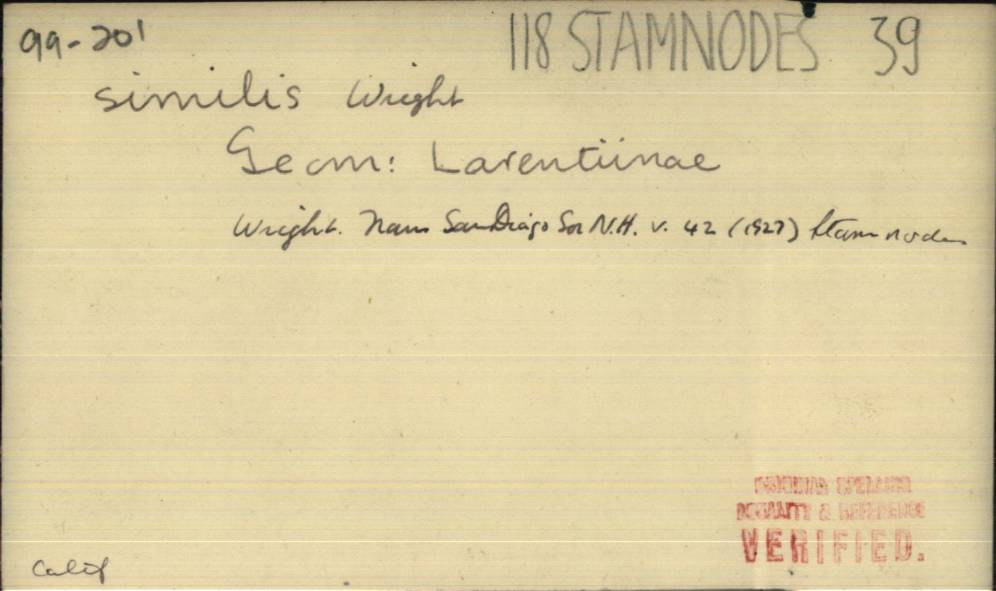 99-201
118 STAMNODES 39
similis Wright
Geom: Larentiinae
Wright. Trans San Diego Soc N.H. v. 42 (1927) Stamnodes
SPELLING
LOCALITY & REFERENCE
VERIFIED.
Calif